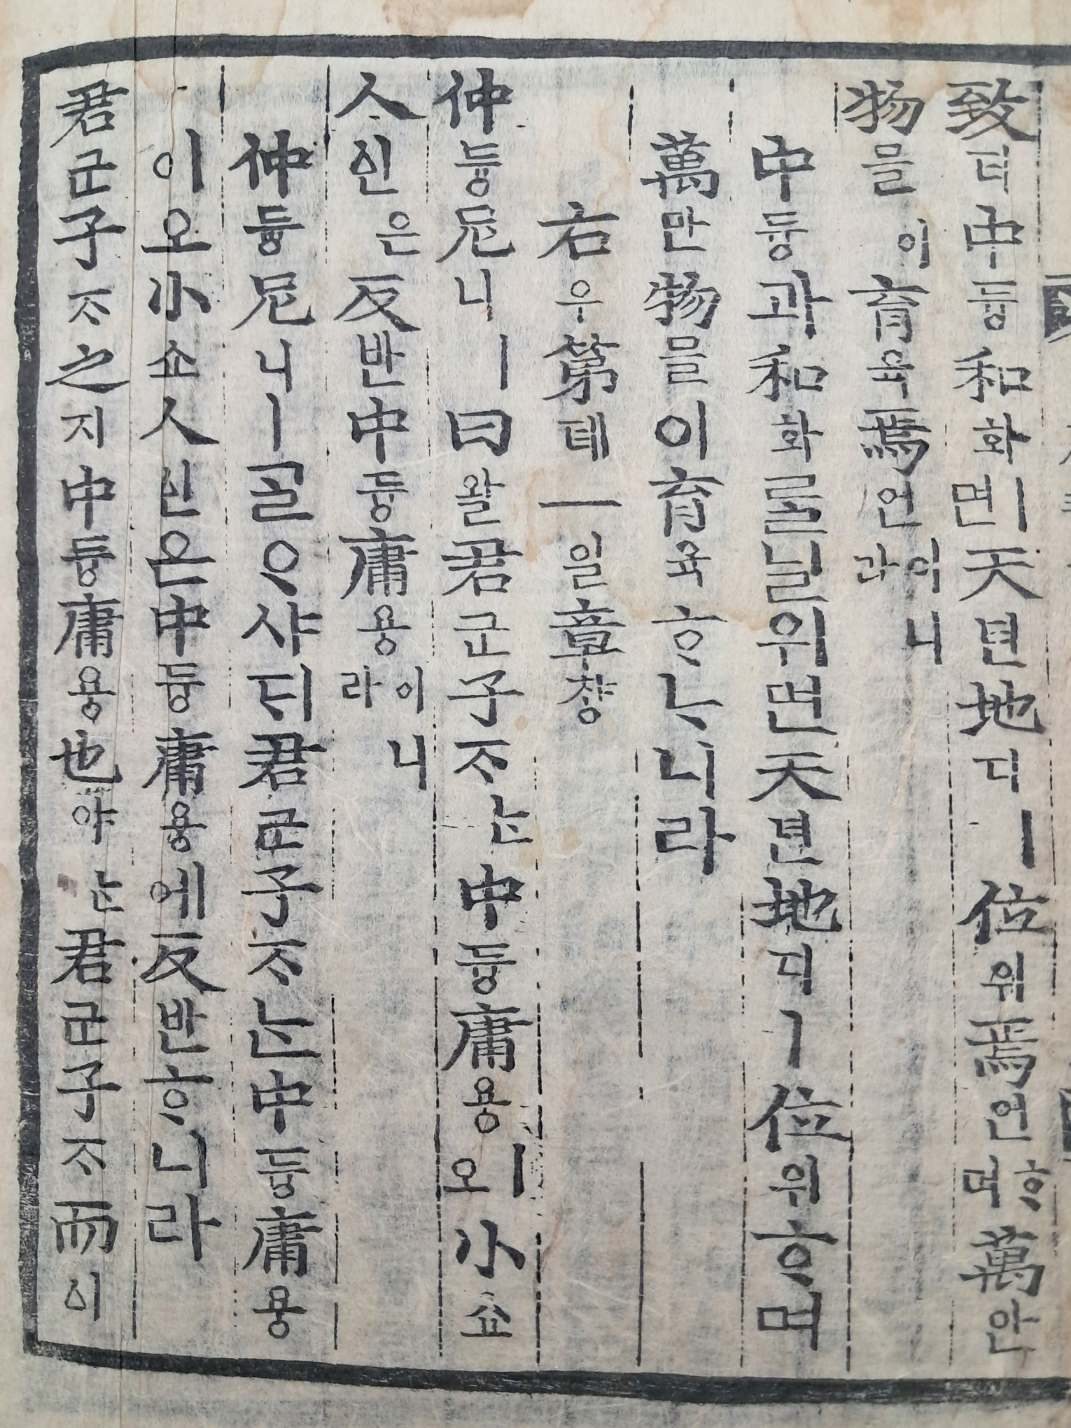 致티中듕和화ㅣ면天텬地디ㅣ位위焉언ᄒᆞ며萬만
物믈이育육焉언이니라
中듕과和화를닐위면天텬地디ㅣ位위ᄒᆞ며
萬만物믈이育육ᄒᆞᄂᆞ니라
右우第뎨一일章쟝
仲듕尼니ㅣ曰왈君군子ᄌᆞᄂᆞᆫ中듕庸용ㅣ오小쇼
人인은反반中듕庸용이니라
仲듕尼니ㅣᄀᆞᆯᄋᆞ샤ᄃᆡ君군子ᄌᆞᄂᆞᆫ中듕庸용
이오小쇼人인은中듕庸용에反반ᄒᆞ니라
君군子ᄌᆞ之지中듕庸용也야ᄂᆞᆫ君군子ᄌᆞ而이